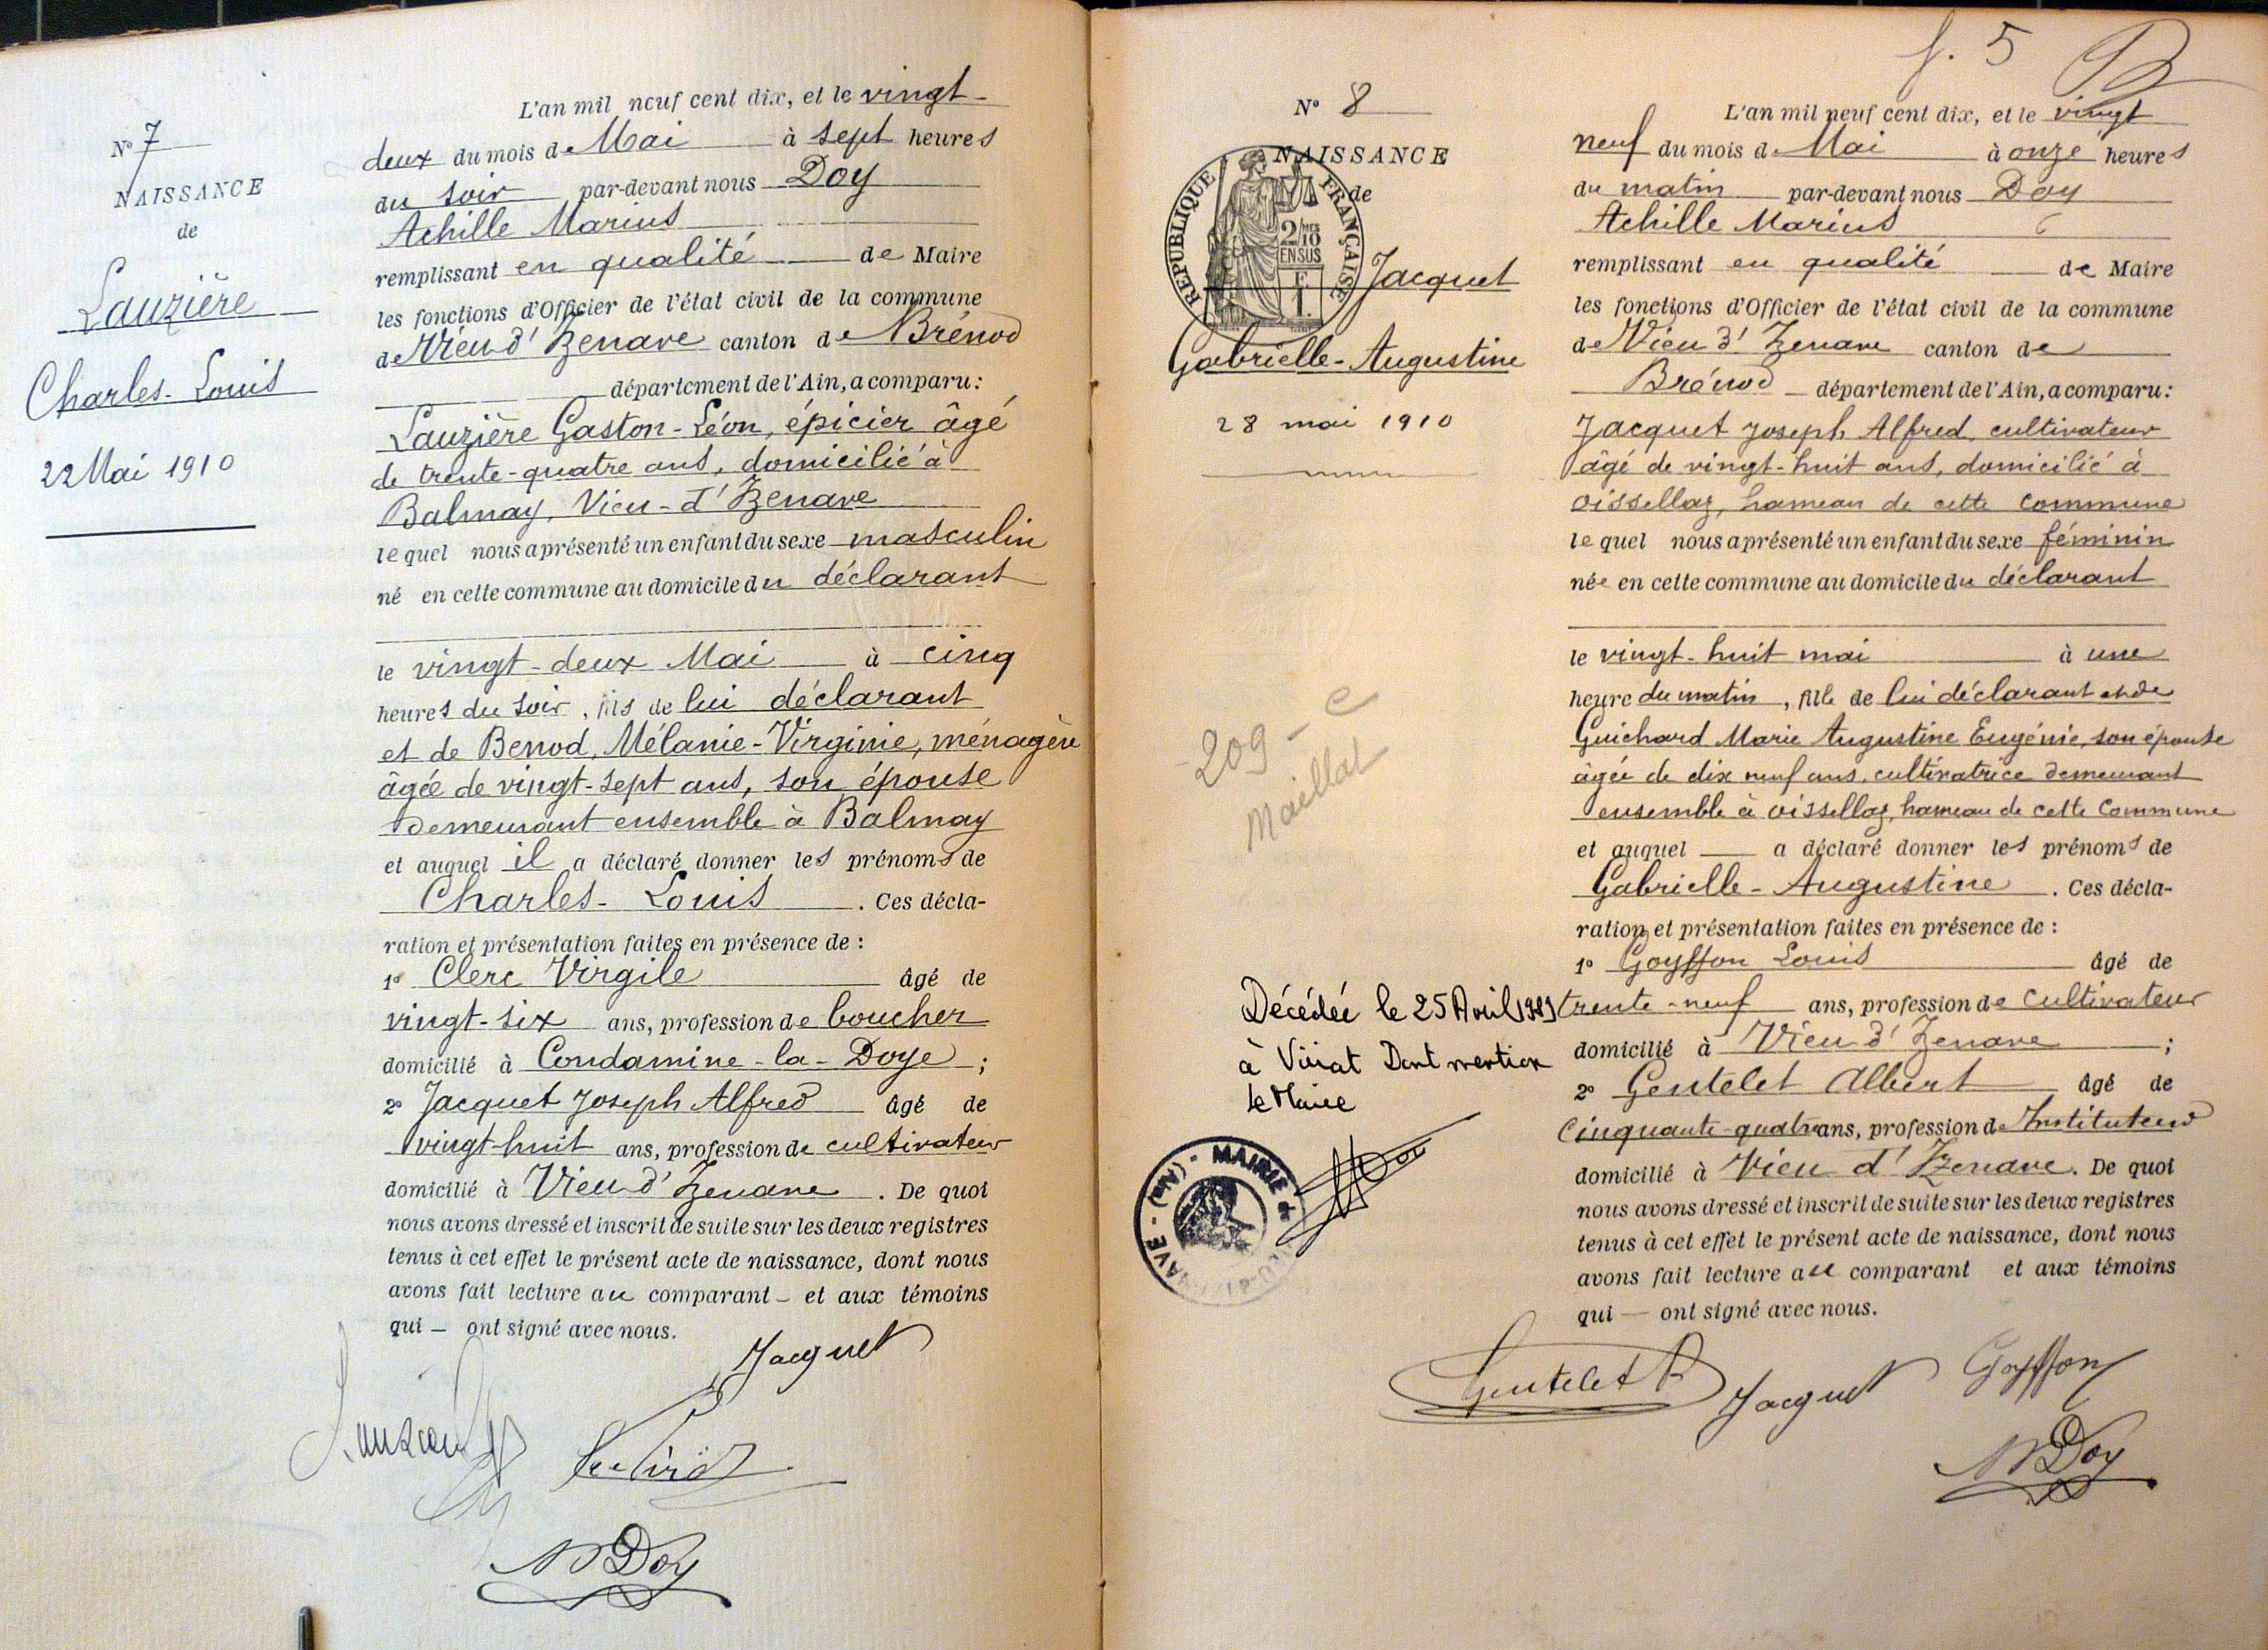 N° 7
NAISSANCE
de
Lauzière
Charles-Louis
22 Mai 1910
L'an mil neuf cent dix, et le vingt-
deux du mois de Mai à sept heures
du soir par-devant nous Doy
Achille Marius
remplissant en qualité de Maire
les fonctions d'Officier de l'état civil de la commune
de Vieu d'Izenave canton de Brénod
département de l'Ain, a comparu:
Lauzière Gaston-Léon, épicier âgé
de trente-quatre ans, domicilié à
Balmay, Vieu-d'Izenave
lequel nous a présenté un enfant du sexe masculin
né en cette commune au domicile du déclarant
le vingt-deux Mai à cinq
heures du soir, fils de lui déclarant
et de Benod, Mélanie-Virginie, ménagère
âgée de vingt-sept ans, son épouse
demeurant ensemble à Balmay
et auquel il a déclaré donner les prénoms de
Charles-Louis. Ces décla-
ration et présentation faites en présence de :
1° Clerc Virgile âgé de
vingt-six ans, profession de boucher
domicilié à Condamine-la-Doye ;
2° Jacquet Joseph Alfred âgé de
vingt-huit ans, profession de cultivateur
domicilié à Vieu d'Izenave. De quoi
nous avons dressé et inscrit de suite sur les deux registres
tenus à cet effet le présent acte de naissance, dont nous
avons fait lecture au comparant – et aux témoins
qui – ont signé avec nous.
Jacquet
Doy
f. 5
N° 8
NAISSANCE
de
REPUBLIQUE FRANÇAISE
2/10
EN SUS
F.
1.
Jacquet
Gabrielle-Augustine
28 mai 1910
209 - C
Maillat
Décédée le 25 Avril
à Viriat Dont mention
Le Maire
MAIRIE
L'an mil neuf cent dix, et le vingt
neuf du mois de Mai à onze heures
du matin par-devant nous Doy
Achille Marius
remplissant en qualité de Maire
les fonctions d'Officier de l'état civil de la commune
de Vieu d'Izenave canton de
Brénod département de l'Ain, a comparu:
Jacquet Joseph Alfred, cultivateur
âgé de vingt-huit ans, domicilié à
Oissellaz, hameau de cette commune
lequel nous a présenté un enfant du sexe féminin
née en cette commune au domicile du déclarant
le vingt-huit mai à une
heure du matin, fille de lui déclarant et de
Guichard Marie Augustine Eugénie, son épouse
âgée de dix neuf ans, cultivatrice demeurant
ensemble à Oissellaz, hameau de cette commune
et auquel — a déclaré donner les prénoms de
Gabrielle-Augustine. Ces décla-
ration et présentation faites en présence de :
1° Goyffon Louis âgé de
trente-neuf ans, profession de cultivateur
domicilié à Vieu d'Izenave ;
2° Gentelet Albert âgé de
Cinquante-quatre ans, profession d'Instituteur
domicilié à Vieu d'Izenave. De quoi
nous avons dressé et inscrit de suite sur les deux registres
tenus à cet effet le présent acte de naissance, dont nous
avons fait lecture au comparant et aux témoins
qui — ont signé avec nous.
Gentelet A Jacquet Goyffon
Doy